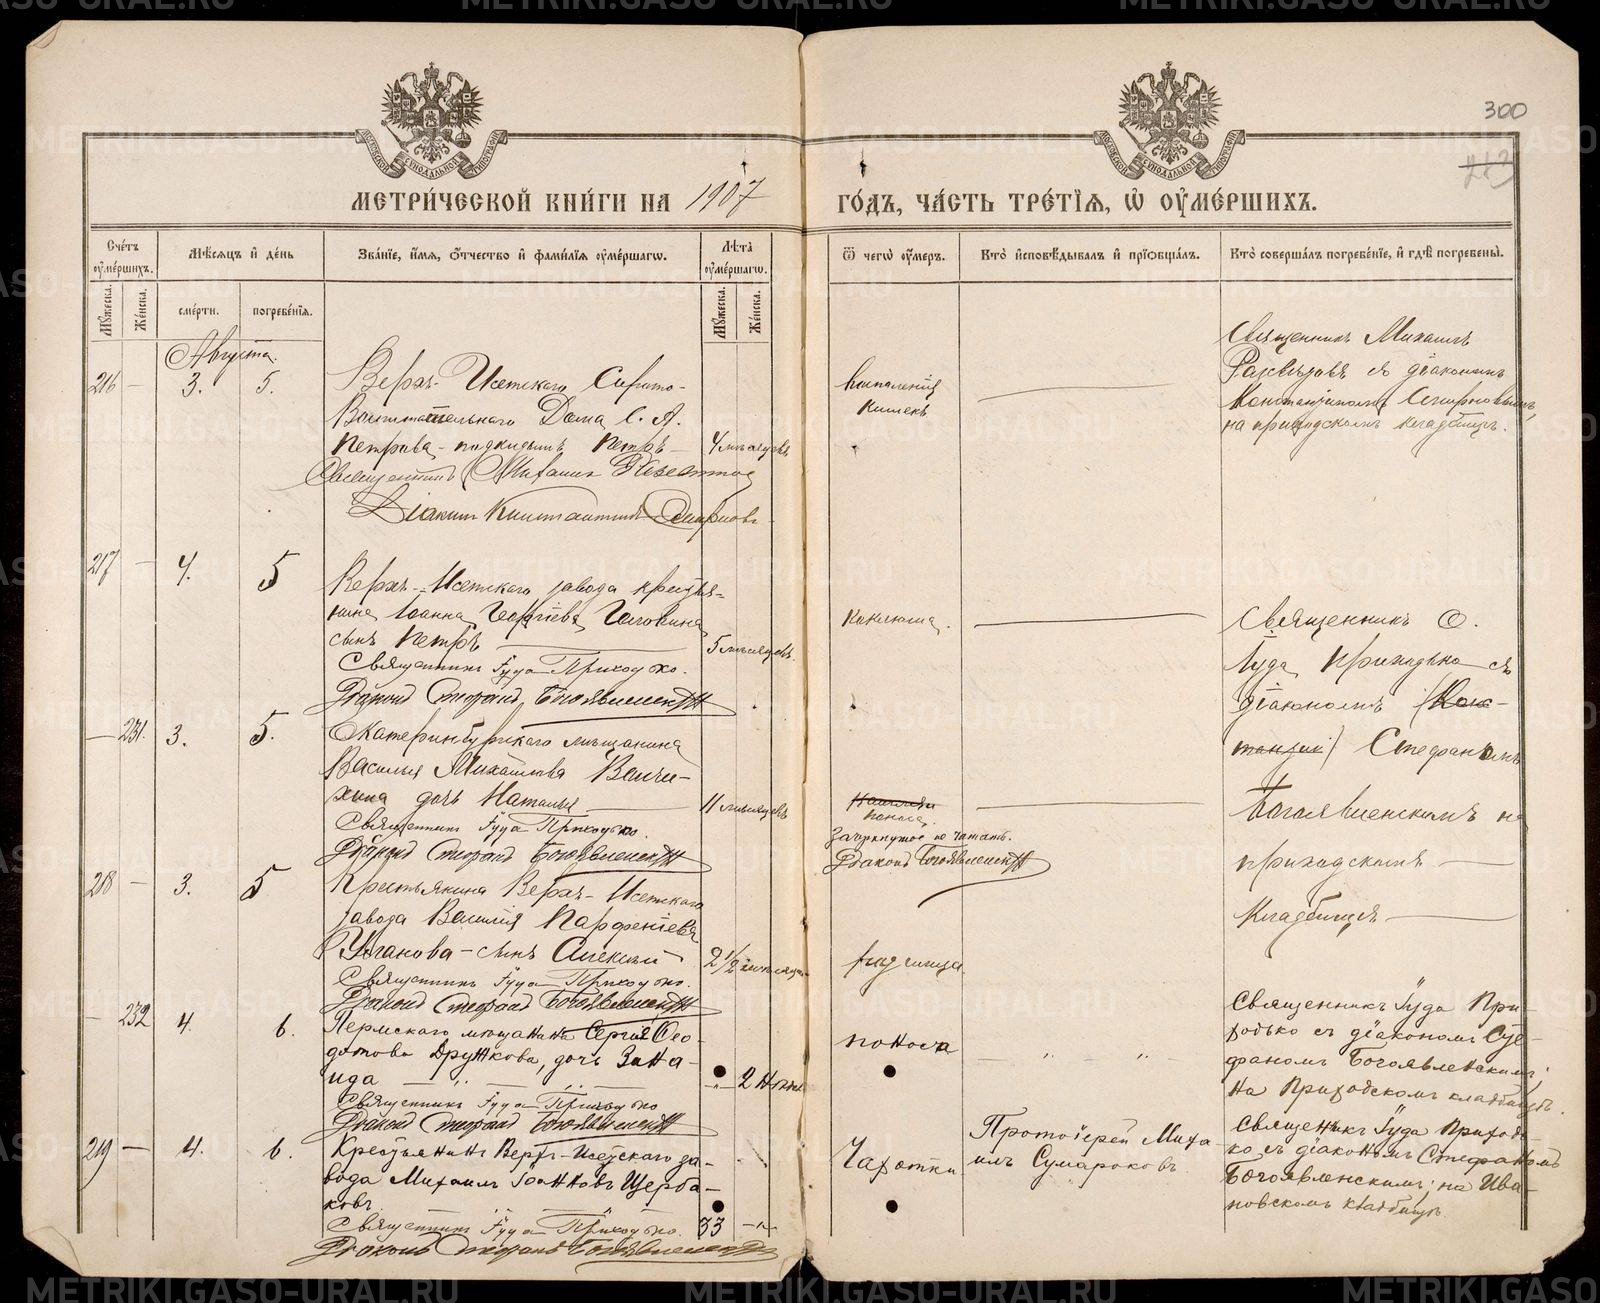 300
213
МЕТРИ́ЧЕСКОЙ КНИ́ГИ НА 1907
ГО́ДЪ, ЧА́СТЬ ТРЕ́ТІѦ, Ѿ ОУМЕ́РШИХЪ.
Сче́тъ оуме́ршихъ.
Мѣ́сѧцъ и҆ де́нь
Зва́ніе, и҆́мѧ, ѻ҆́тчество и҆ фами́лїѧ оуме́ршагѡ.
Лѣ́та оуме́ршагѡ.
Ѿ чегѡ̀ оу́меръ.
Кто̀ и҆сповѣ́дывалъ и҆ прїѡбща́лъ.
Кто̀ соверша́лъ погребе́нїе, и҆ гдѣ̀ погребены̀.
Му́жеска.
Же́нска.
сме́рти.
погребе́нїѧ.
Му́жеска.
Же́нска.
Августа.
216 — 3. 5.
Верхъ-Исетскаго Сирото-
Воспитательнаго Дома С. А.
Петрова - подкидышъ Петръ —
4 мѣсяцевъ
Священникъ Михаилъ
Діаконъ Константинъ Смирновъ
воспаленія
кишекъ
Священникъ Михаилъ
съ діакономъ
Константиномъ Смирновымъ,
на приходскомъ кладбищѣ.
217 — 4. 5
Верхъ-Исетскаго завода крестья-
нина Іоанна Георгіева
сынъ Петръ
5 мѣсяцевъ
Священникъ Іуда Приходько.
Діаконъ Стефанъ Богоявленскій
Коклюша.
Священникъ О.
Іуда Приходько съ
діакономъ (Конс-
тантин) Стефаномъ
Богоявленскимъ на
приходскомъ —
кладбищѣ —
— 231. 3. 5.
Екатеринбургскаго мѣщанина
Василья Михайлова
дочь Наталья
11 мѣсяцевъ
Священникъ Іуда Приходько.
Діаконъ Стефанъ Богоявленскій
поноса.
Зачеркнутое не читать.
Діаконъ Богоявленскій
218 — 3. 5
Крестьянина Верхъ-Исетскаго
завода Василія Парфеніева
сынъ Алексѣй
2 1/2 мѣсяца
Священникъ Іуда Приходько.
Діаконъ Стефанъ Богоявленскій
родимца
— 232 4. 6.
Пермскаго мѣщанина Сергія Ѳео-
дотова Дружкова, дочь Зина-
ида
Священникъ Іуда Приходько
Діаконъ Стефанъ Богоявленскій
поноса
Священникъ Іуда При-
ходько съ діакономъ Сте-
фаномъ Богоявленскимъ;
на Приходскомъ кладбищѣ.
219 — 4. 6.
Крестьянинъ Верхъ-Исетскаго за-
вода Михаилъ Іоанновъ Щерба-
ковъ
33
Священникъ Іуда Приходько.
Діаконъ Стефанъ Богоявленскій
Чахотки
Протоіерей Миха-
илъ Сумароковъ
Священикъ Іуда Приходь-
ко съ діакономъ Стефаномъ
Богоявленскимъ; на Ива-
новскомъ кладбищѣ.
METRIKI.GASO-URAL.RU